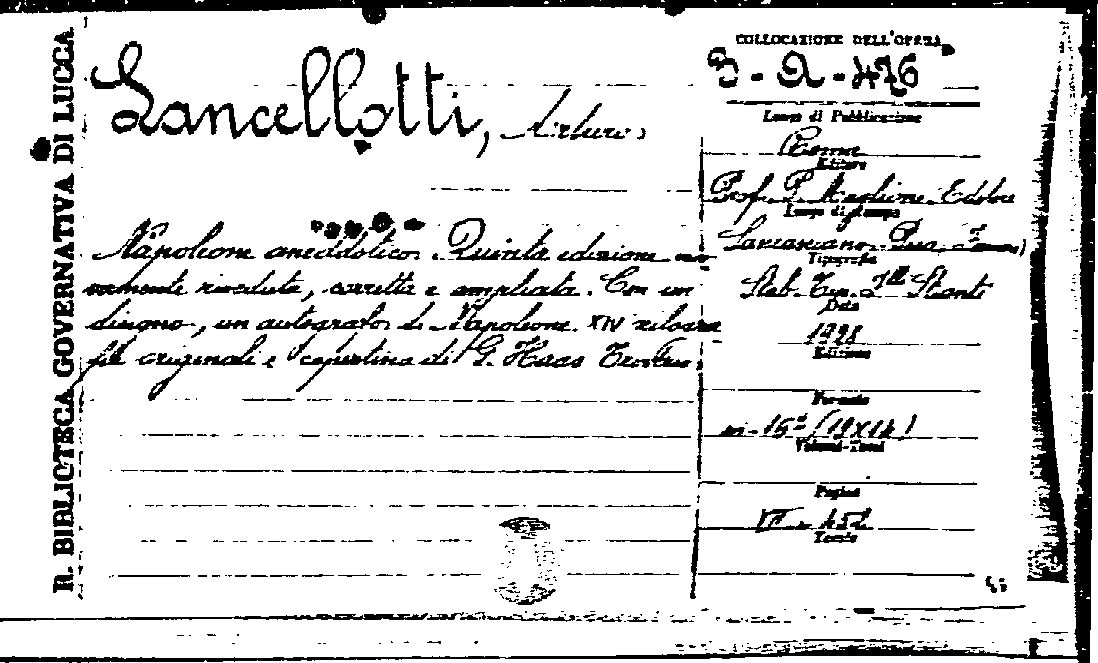 R. BIBLIOTECA GOVERNATIVA DI LUCCA
Lancellotti, Arturo
Napoleone aneddotico. Quinta edizione nuo-
vamente riveduta, corretta e ampliata. Con un
disegno, un autografo di Napoleone. XIV xilogra-
fie originali e copertina di G. Haas
COLLOCAZIONE DELL'OPERA
3 - A - 476
Luogo di Pubblicazione
Roma
Editore
Prof. P. Maglione Editore
Luogo di stampa
Sancasciano-Pesa
Tipografia
Stab. Tip. F.lli Stianti
Data
Edizione
Formato
in-16°
Volumi-Tomi
Pagine
Tavole